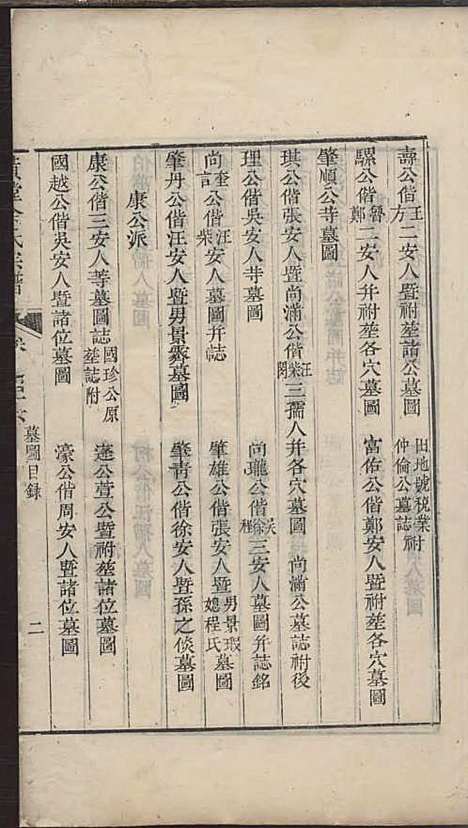 壽公偕王方二安人暨祔塟諸公墓圖 田地號税業祔 仲倫公墓誌
騾公偕詹鄭二安人幷祔塟各穴墓圖 富佑公偕鄭安人暨祔塟各穴墓圖
肇順公𦬇墓圖
琪公偕張安人暨尚滿公偕汪柴閔三孺人幷各穴墓圖 尚滿公墓誌祔後
理公偕吳安人𦬇墓圖 尚瓏公偕吳徐程三安人墓圖幷誌銘
尚奎言公偕汪柴安人墓圖幷誌 肇雄公偕張安人暨男景瑕媳程氏墓圖
肇丹公偕汪安人暨男景霶墓圖 肇青公偕徐安人暨孫之倓墓圖
康公派
康公偕三安人等墓圖誌 國珍公原塟誌附 達公萱公暨祔塟諸位墓圖
國越公偕吳安人暨諸位墓圖 濠公偕周安人暨諸位墓圖
宗譜 墓圖目録 二